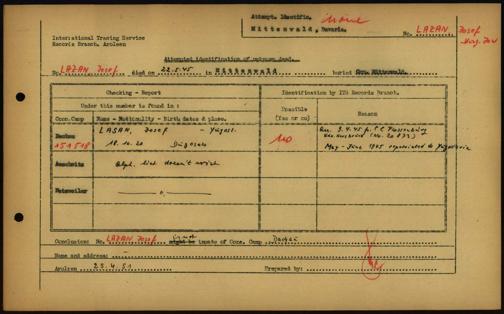 Attempt. Identific. none
Mittenwald, Bavaria.
No. LAZAN Josef
Jug. Jew
International Tracing Service
Records Branch, Arolsen
Attempted identification of unknown dead.
No. LAZAN Josef died on 22.5.45 in Mittenwald buried Cem. Mittenwald.
Checking - Report
Identification by ITS Records Branch.
Under this number is found in:
Possible (Yes or no)
Reason
Conc. Camp
Name - Nationality - Birth dates & place.
Dachau
151518
LASAN, Josef - Yugosl.
18.10.20
no
May - June 1945 repatriated to Yugoslavia
Auschwitz
Alph. list doesn't exist
Natzweiler
Conclusion: No. LAZAN Josef might be inmate of Conc. Camp Dachau
Name and address:
Arolsen 25.4.51 Prepared by: